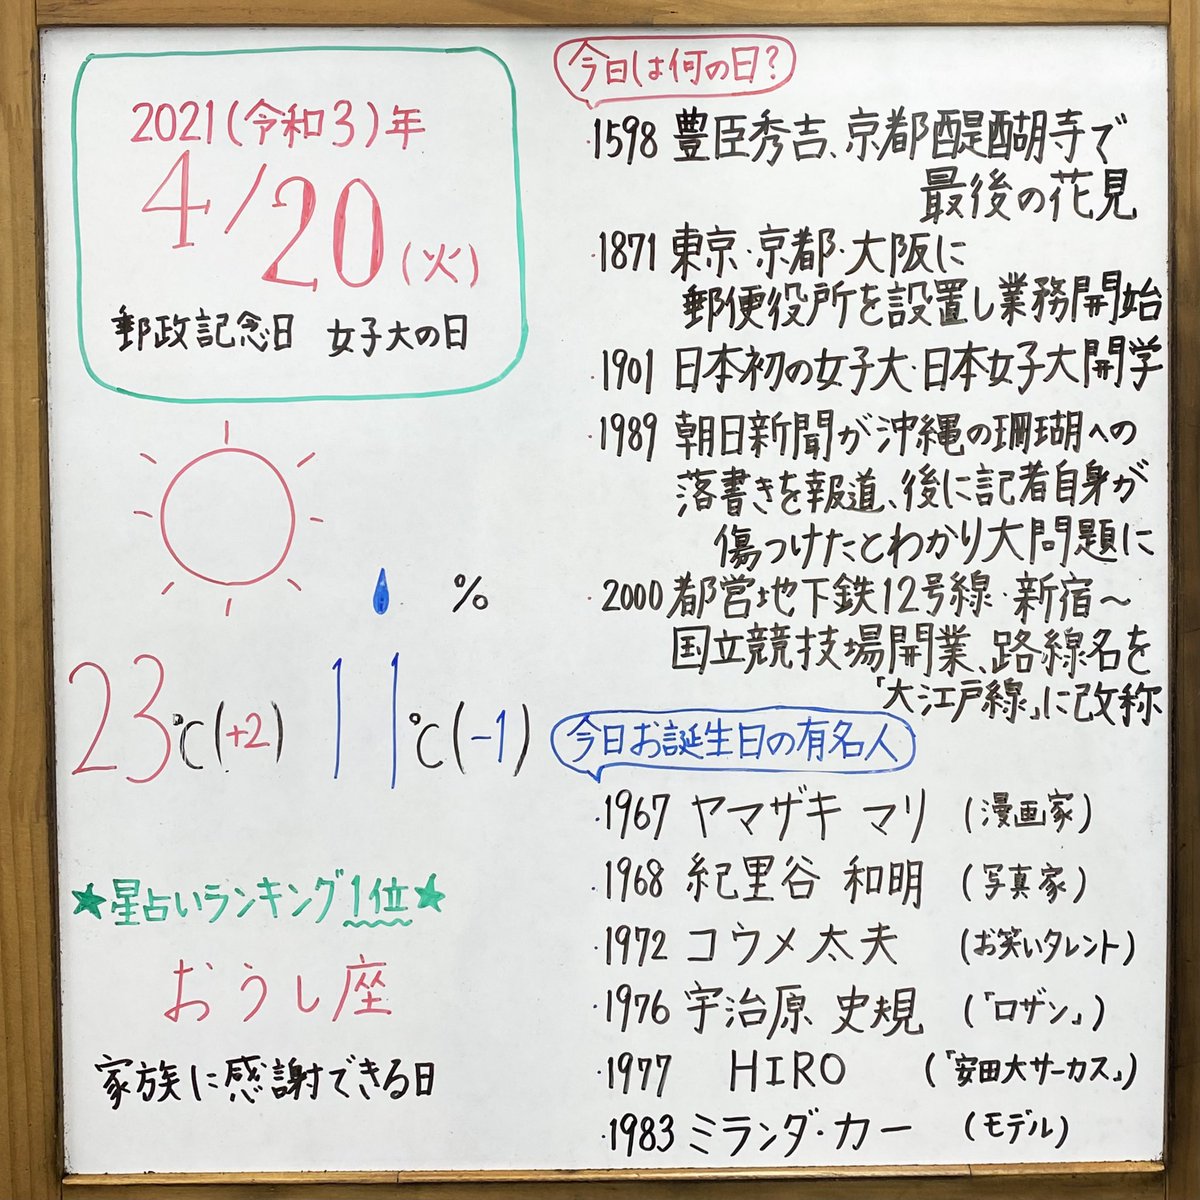 2021(令和3)年
4/20(火)
郵政記念日 女子大の日
%
23℃(+2) 11℃(-1)
★星占いランキング1位★
おうし座
家族に感謝できる日
今日は何の日?
・1598 豊臣秀吉、京都醍醐寺で
最後の花見
・1871 東京・京都・大阪に
郵便役所を設置し業務開始
・1901 日本初の女子大・日本女子大開学
・1989 朝日新聞が沖縄の珊瑚への
落書きを報道、後に記者自身が
傷つけたとわかり大問題に
・2000 都営地下鉄12号線・新宿〜
国立競技場開業、路線名を
「大江戸線」に改称
今日お誕生日の有名人
・1967 ヤマザキ マリ (漫画家)
・1968 紀里谷 和明 (写真家)
・1972 コウメ太夫 (お笑いタレント)
・1976 宇治原 史規 (「ロザン」)
・1977 HIRO (「安田大サーカス」)
・1983 ミランダ・カー (モデル)